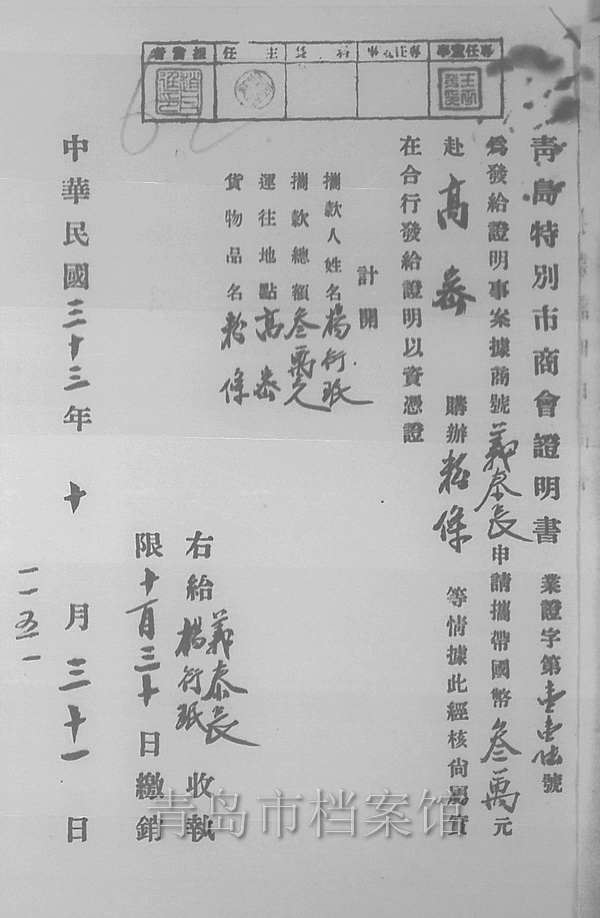 專任董事
主任
青島特別市商會證明書 業證字第壹壹伍號
爲發給證明事案據商號義泰長申請攜帶國幣叁萬元
赴高密購辦粉條等情據此經核尙屬實
在合行發給證明以資憑證
計開
攜款人姓名楊衍珉
攜款總額叁萬元
運往地點高密
貨物品名粉條
右給義泰長楊衍珉收執
限十一月三十日繳銷
中華民國三十三年十月三十一日
青岛市档案馆